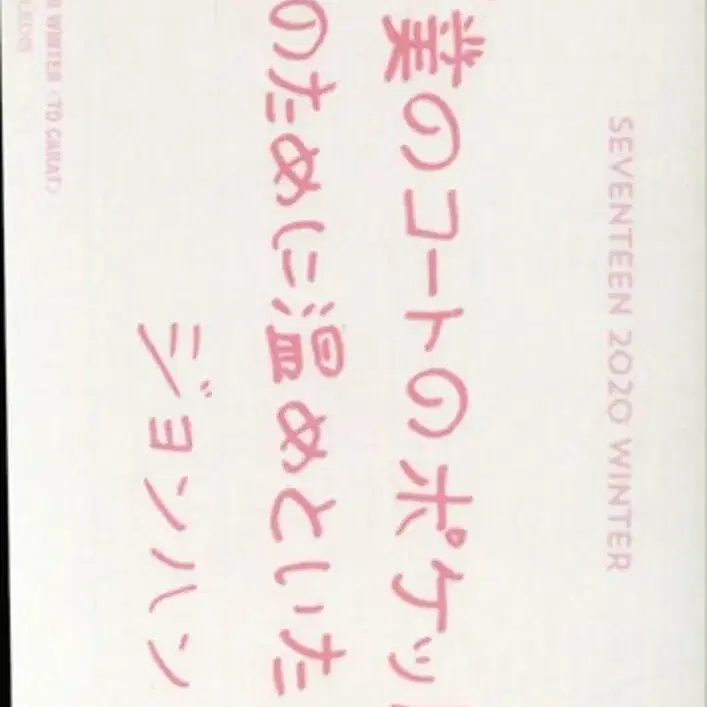 SEVENTEEN 2020 WINTER
僕のコートのポケット
のために温めといた
ジョンハン
WINTER <TO CARAT>